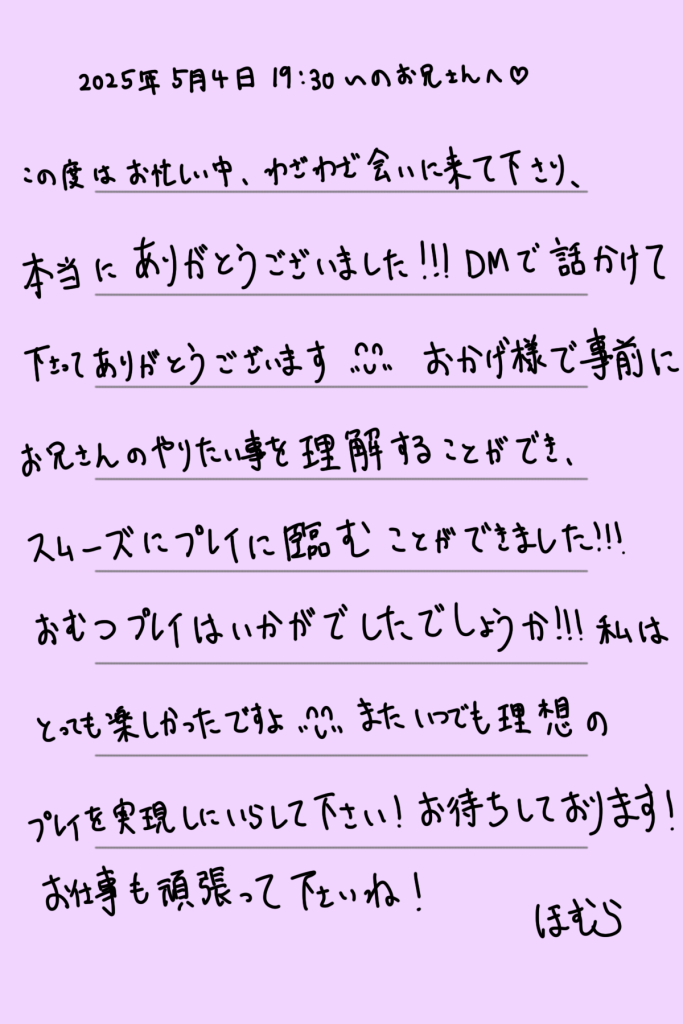 2025年 5月4日 19:30 〜のお兄さんへ♡
この度は お忙しい中、わざわざ会いに来て下さり、
本当に ありがとうございました!!! DMで 話かけて
下さってありがとうございます おかげ様で事前に
お兄さんのやりたい事を理解することができ、
スムーズにプレイに臨むことができました!!!
おむつプレイはいかがでしたでしょうか!!! 私は
とっても楽しかったですよ またいつでも理想の
プレイを実現しにいらして下さい! お待ちしております!
お仕事も頑張って下さいね!
ほむら